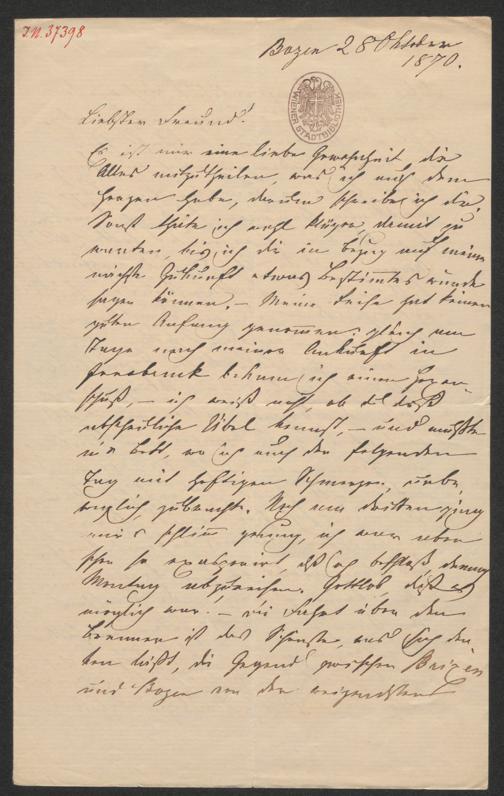 I.N. 37398
Bozen 28 Oktober
1870.
WIENER STADTBIBLIOTHEK
Liebster Freund!
Es ist mir eine liebe Gewohnheit dir
Alles mitzutheilen, was ich auf dem
Herzen habe, darum schreibe ich dir.
Sonst thäte ich wohl klüger, damit zu
warten, bis ich dir in Bezug auf meine
nächste Zukunft etwas Bestimmtes würde
sagen können. – Meine Reise hat keinen
guten Anfang genommen: gleich am
Tage nach meiner Ankunft in
Innsbruck bekam ich einen Hexen-
schuß, – ich weiß nicht, ob du dieß
abscheuliche Übel kennst, – und mußte
in's Bett, wo ich auch den folgenden
Tag mit heftigen Schmerzen, unbe
weglich zubrachte. Noch am dritten ging
mir's schlimm genug, ich war aber
schon so exasperirt, daß ich beschloß, dennoch
Montag abzureisen. Gottlob, daß es
möglich war. – Die Fahrt über den
Brenner ist das Schönste, was sich den
ken läßt, die Gegend zwischen Brixen
und Bozen von den reizendsten